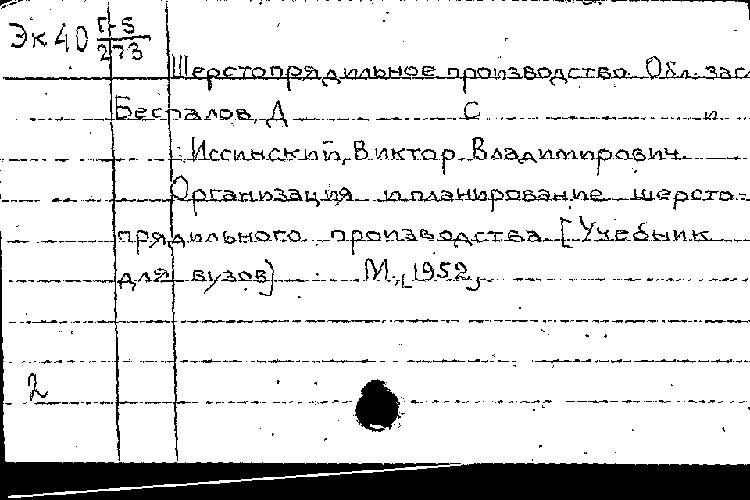 Эк 40 Г-5
273
Шерстопрядильное производство. Обл. загл
Беспалов, Д С и
Иссинский, Виктор Владимирович.
Организация и планирование шерсто-
прядильного производства. [Учебник
для вузов]. М., [1952,
2